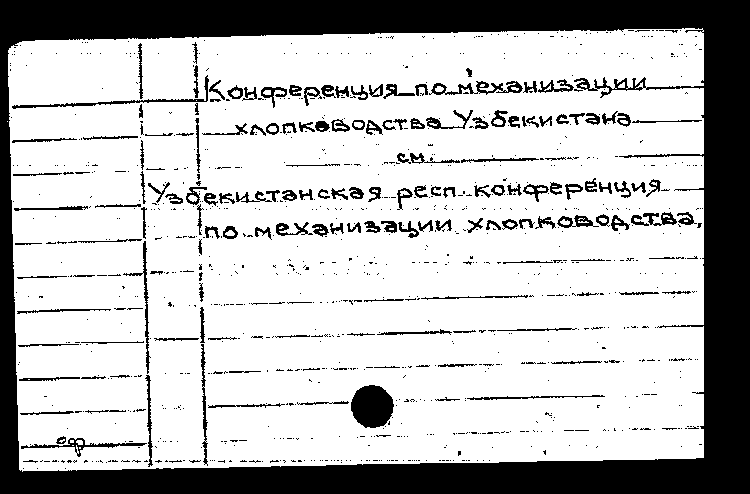 Конференция по механизации
хлопководства Узбекистана
см.
Узбекистанская респ. конференция
по механизации хлопководства,